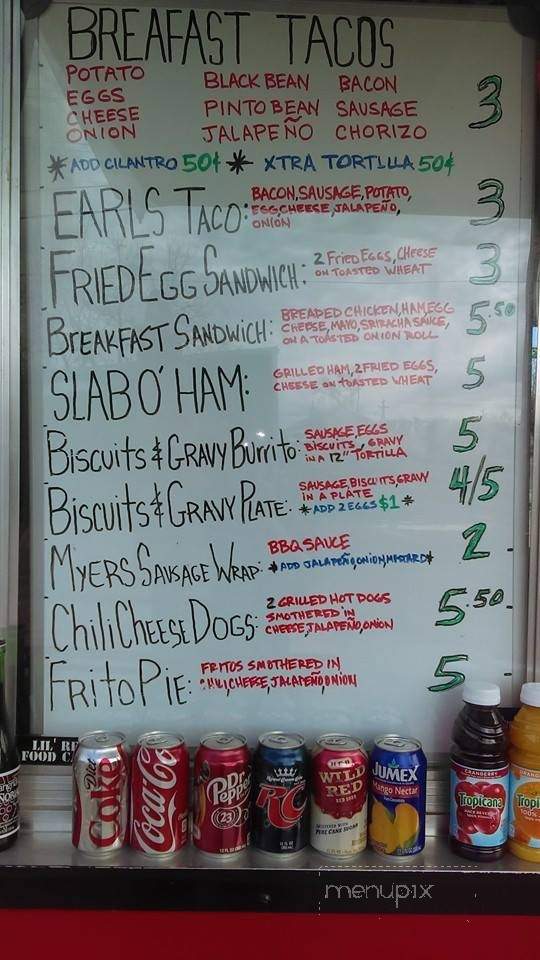 BREAFAST TACOS
POTATO BLACK BEAN BACON
EGGS PINTO BEAN SAUSAGE 3
CHEESE JALAPEÑO CHORIZO
ONION
*ADD CILANTRO 50¢ * XTRA TORTLLA 50¢
EARLS TACO: BACON, SAUSAGE, POTATO, 3
EGG, CHEESE, JALAPEÑO,
ONION
FRIED EGG SANDWICH: 2 FRIED EGGS, CHEESE 3
ON TOASTED WHEAT
BREAKFAST SANDWICH: BREADED CHICKEN, HAM, EGG 5.50
CHEESE, MAYO, SRIRACHA SAUCE,
ON A TOASTED ONION ROLL
SLAB O' HAM: GRILLED HAM, 2 FRIED EGGS, 5
CHEESE ON TOASTED WHEAT
BISCUITS & GRAVY BURRITO: SAUSAGE, EGGS 5
BISCUITS, GRAVY
IN A 12" TORTILLA
BISCUITS & GRAVY PLATE: SAUSAGE, BISCUITS, GRAVY 4/5
IN A PLATE
*ADD 2 EGGS $1*
MYERS SAUSAGE WRAP: BBQ SAUCE 2
*ADD JALAPEÑO, ONION, MUSTARD*
CHILI CHEESE DOGS: 2 GRILLED HOT DOGS 5.50
SMOTHERED IN
CHEESE, JALAPEÑO, ONION
FRITO PIE: FRITOS SMOTHERED IN 5
CHILI, CHEESE, JALAPEÑO, ONION
LIL' RE
FOOD C
Diet Coke
Coca-Cola
Dr Pepper
23
RC
WILD RED
JUMEX
Mango Nectar
CRANBERRY
Tropicana
Tropi
100%
menupix